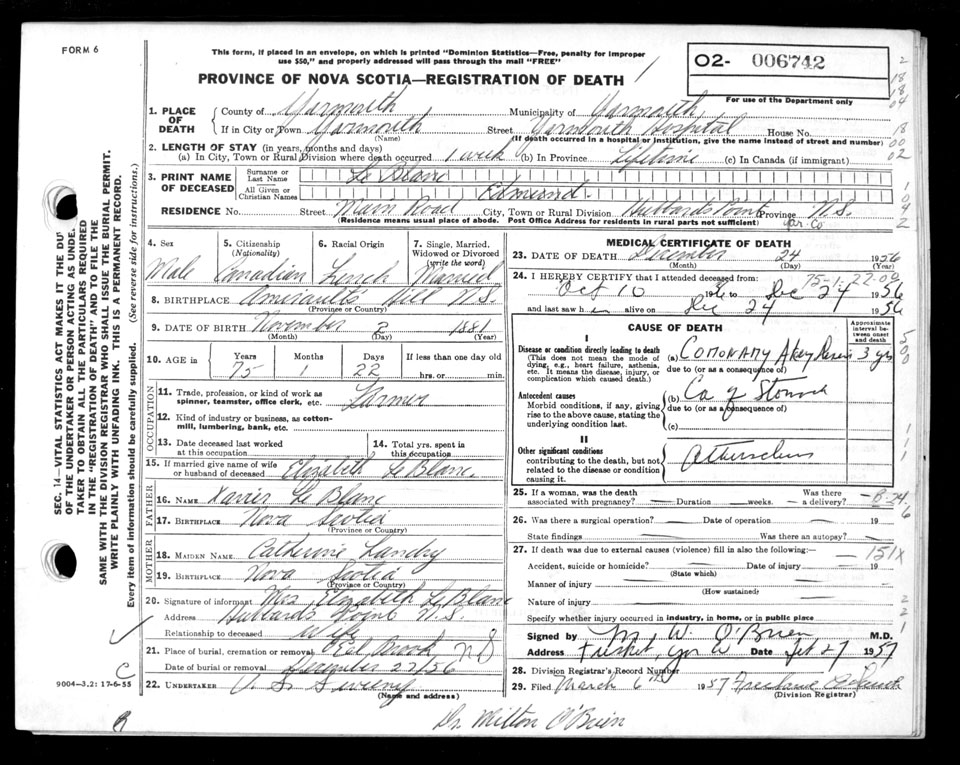 FORM 6
This form, if placed in an envelope, on which is printed "Dominion Statistics—Free, penalty for improper
use $50," and properly addressed will pass through the mail "FREE"
PROVINCE OF NOVA SCOTIA—REGISTRATION OF DEATH
O2- 006742
For use of the Department only
1. PLACE OF DEATH
County of Yarmouth Municipality of Yarmouth
If in City or Town Yarmouth Street Yarmouth Hospital House No.
(Name) (If death occurred in a hospital or institution, give the name instead of street and number)
2. LENGTH OF STAY (in years, months and days)
(a) In City, Town or Rural Division where death occurred 1 week (b) In Province Lifetime (c) In Canada (if immigrant)
3. PRINT NAME OF DECEASED
Surname or Last Name Le Blanc
All Given or Christian Names Edmund
RESIDENCE No. Street Main Road City, Town or Rural Division Hubbards Point Province N.S.
(Residence means usual place of abode. Post Office Address for residents in rural parts not sufficient) Yar. Co
4. Sex
Male
5. Citizenship (Nationality)
Canadian
6. Racial Origin
French
7. Single, Married, Widowed or Divorced (write the word)
Married
8. BIRTHPLACE Amirault's Hill N.S.
(Province or Country)
9. DATE OF BIRTH November 2 1881
(Month) (Day) (Year)
10. AGE in Years Months Days If less than one day old
75 1 22 hrs. or min.
OCCUPATION
11. Trade, profession, or kind of work as spinner, teamster, office clerk, etc. Farmer
12. Kind of industry or business, as cotton-mill, lumbering, bank, etc.
13. Date deceased last worked at this occupation
14. Total yrs. spent in this occupation
15. If married give name of wife or husband of deceased Elizabeth Le Blanc
FATHER
16. NAME Xavier Le Blanc
17. BIRTHPLACE Nova Scotia
(Province or Country)
MOTHER
18. MAIDEN NAME Catherine Landry
19. BIRTHPLACE Nova Scotia
(Province or Country)
20. Signature of informant Mrs Elizabeth Le Blanc
Address Hubbards Point N.S.
Relationship to deceased wife
21. Place of burial, cremation or removal Eel Brook, NS
Date of burial or removal December 27/56
22. UNDERTAKER Sweeny
(Name and address)
MEDICAL CERTIFICATE OF DEATH
23. DATE OF DEATH December 24 1956
(Month) (Day) (Year)
24. I HEREBY CERTIFY that I attended deceased from: 75-1-22-00
Oct 10 1956 to Dec 24 1956
and last saw him alive on Dec 24 1956
CAUSE OF DEATH
Approximate interval between onset and death
I
Disease or condition directly leading to death
(This does not mean the mode of dying, e.g., heart failure, asthenia, etc. It means the disease, injury, or complication which caused death.)
(a) 3 yrs
due to (or as a consequence of)
Antecedent causes
Morbid conditions, if any, giving rise to the above cause, stating the underlying condition last.
(b) Ca of Stomach
due to (or as a consequence of)
(c)
II
Other significant conditions
contributing to the death, but not related to the disease or condition causing it.
25. If a woman, was the death associated with pregnancy? Duration weeks. Was there a delivery?
26. Was there a surgical operation? Date of operation 19
State findings Was there an autopsy?
27. If death was due to external causes (violence) fill in also the following:— 151X
Accident, suicide or homicide? Date of injury 19
(State which)
Manner of injury
(How sustained)
Nature of injury
Specify whether injury occurred in industry, in home, or in public place
Signed by M. W. O'Brien M.D.
Address Tusket, Yar Co Date Feb 27 1957
28. Division Registrar's Record Number
29. Filed March 6th 1957
(Division Registrar)
Dr. Milton O'Brien
SEC. 14—VITAL STATISTICS ACT MAKES IT THE DU
OF THE UNDERTAKER OR PERSON ACTING AS UNDE.
TAKER TO OBTAIN ALL THE PARTICULARS REQUIRED
IN THE "REGISTRATION OF DEATH" AND TO FILE THE
SAME WITH THE DIVISION REGISTRAR WHO SHALL ISSUE THE BURIAL PERMIT.
WRITE PLAINLY WITH UNFADING INK. THIS IS A PERMANENT RECORD.
Every item of information should be carefully supplied. (See reverse side for instructions.)
9004—3.2: 17-6-55
C